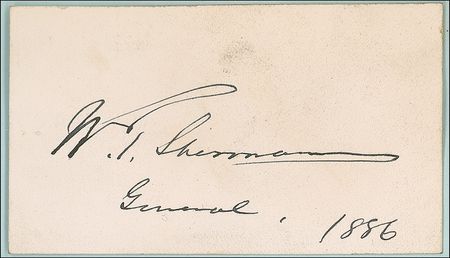 W. T. Sherman
General.
1886